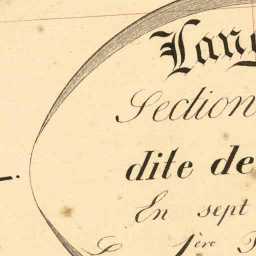 Lang
Section
dite de
En sept
1ère